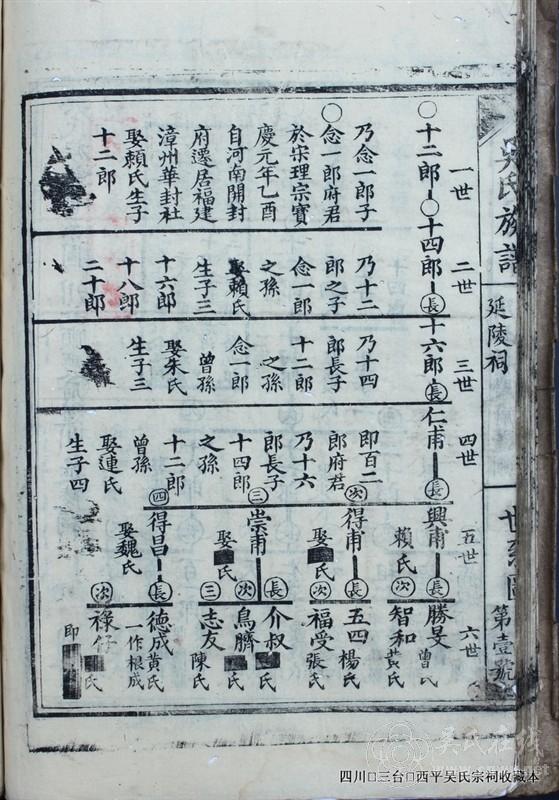 吳氏族譜
延陵祠
世系圖
第壹號
一世
二世
三世
四世
五世
六世
十二郎
十四郎
長
十六郎
長
仁甫
長
興甫
長
勝旻
曾氏
賴氏
次
智和
黃氏
乃念一郎子
念一郎府君
於宋理宗寶
慶元年乙酉
自河南開封
府遷居福建
漳州華封社
娶賴氏生子
十二郎
乃十二
郎之子
念一郎
之孫
娶賴氏
生子三
十六郎
十八郎
二十郎
乃十四
郎長子
十二郎
之孫
念一郎
曾孫
娶朱氏
生子三
即百二
郎府君
乃十六
郎長子
十四郎
之孫
十二郎
曾孫
娶連氏
生子四
次
得甫
長
五四
楊氏
娶
氏
次
福受
張氏
三
崇甫
長
介叔
氏
次
鳥臍
氏
娶
氏
三
志友
陳氏
四
得昌
長
德成
黃氏
一作根成
娶魏氏
次
祿仔
氏
即
吴氏在线
四川□三台□西平吴氏宗祠收藏本